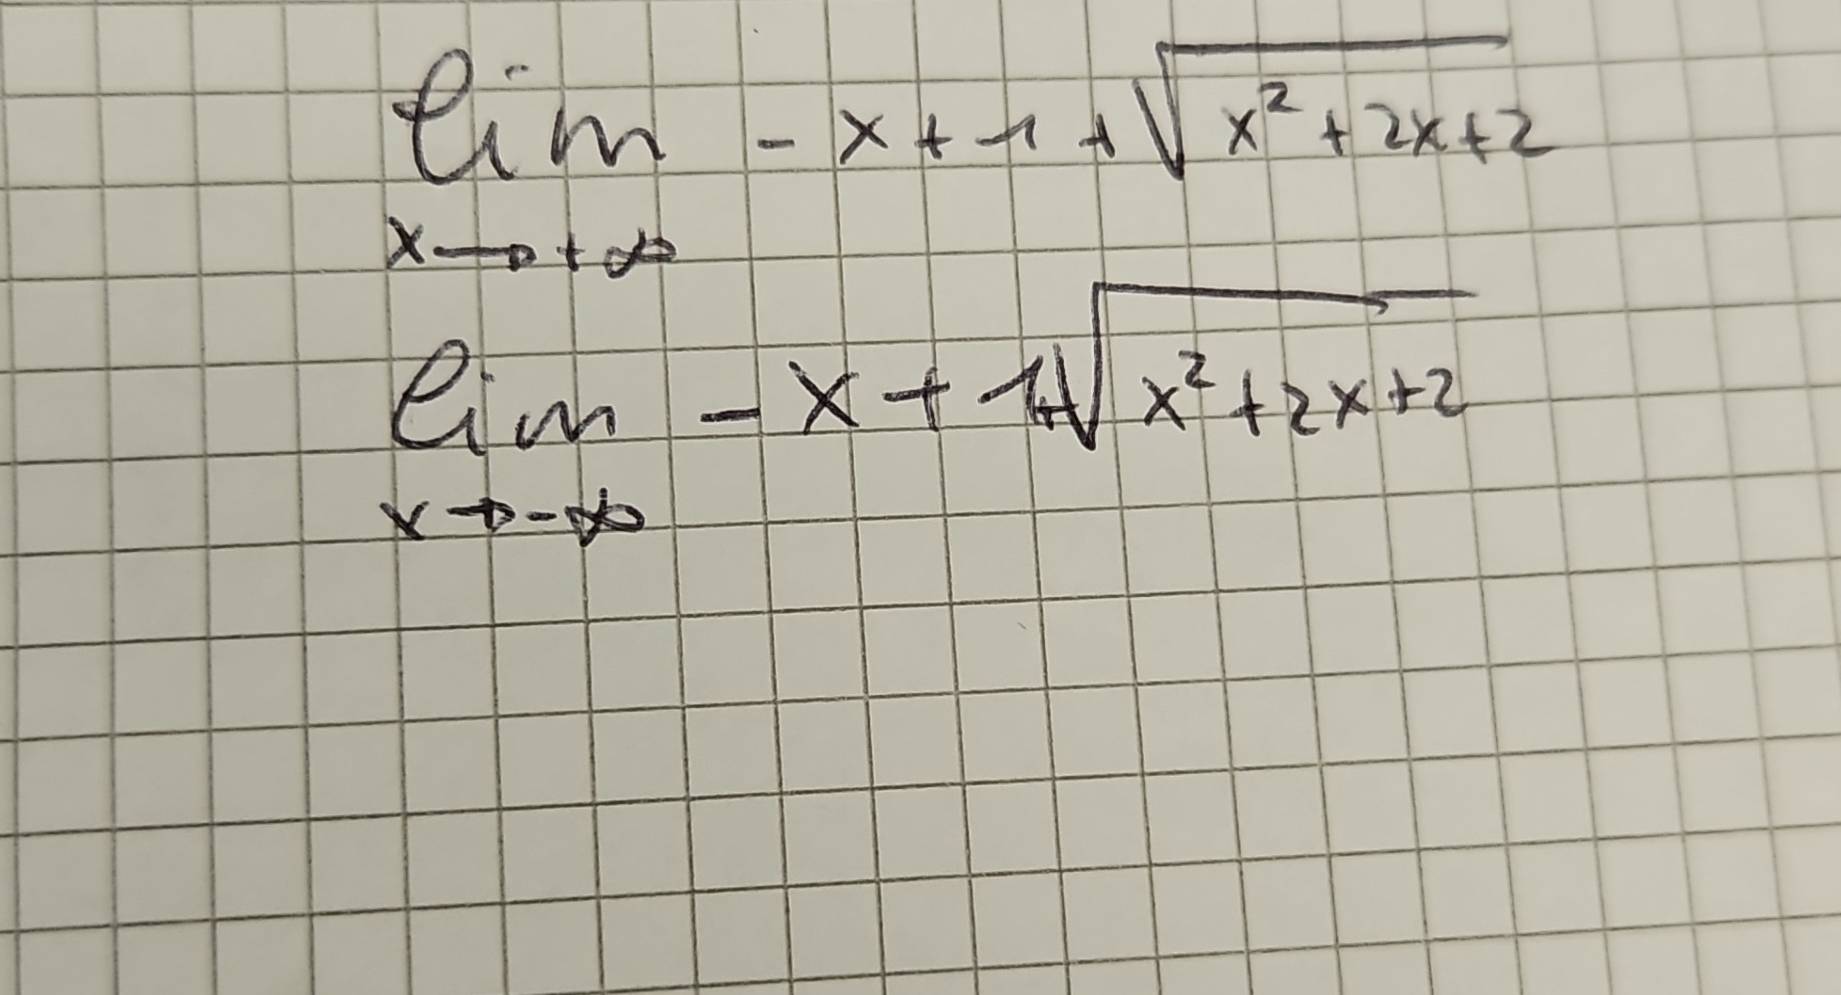 lim -x+1+√(x²+2x+2)
x→+∞
lim -x+1+√(x²+2x+2)
x→-∞